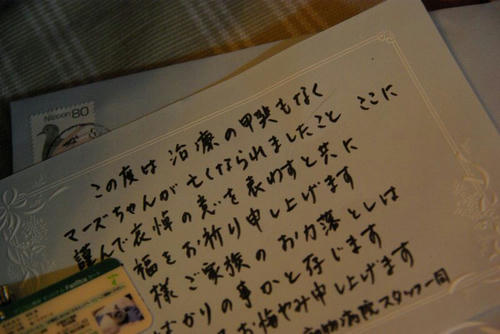 Nippon 80
この度は 治療の甲斐もなく
マーズちゃんが亡くなられましたこと ここに
謹んで哀悼の意を表わすと共に
福をお祈り申し上げます
様 ご家族のお力落としは
ばかりの事かと存じます
お悔やみ申し上げます
病院スタッフ一同